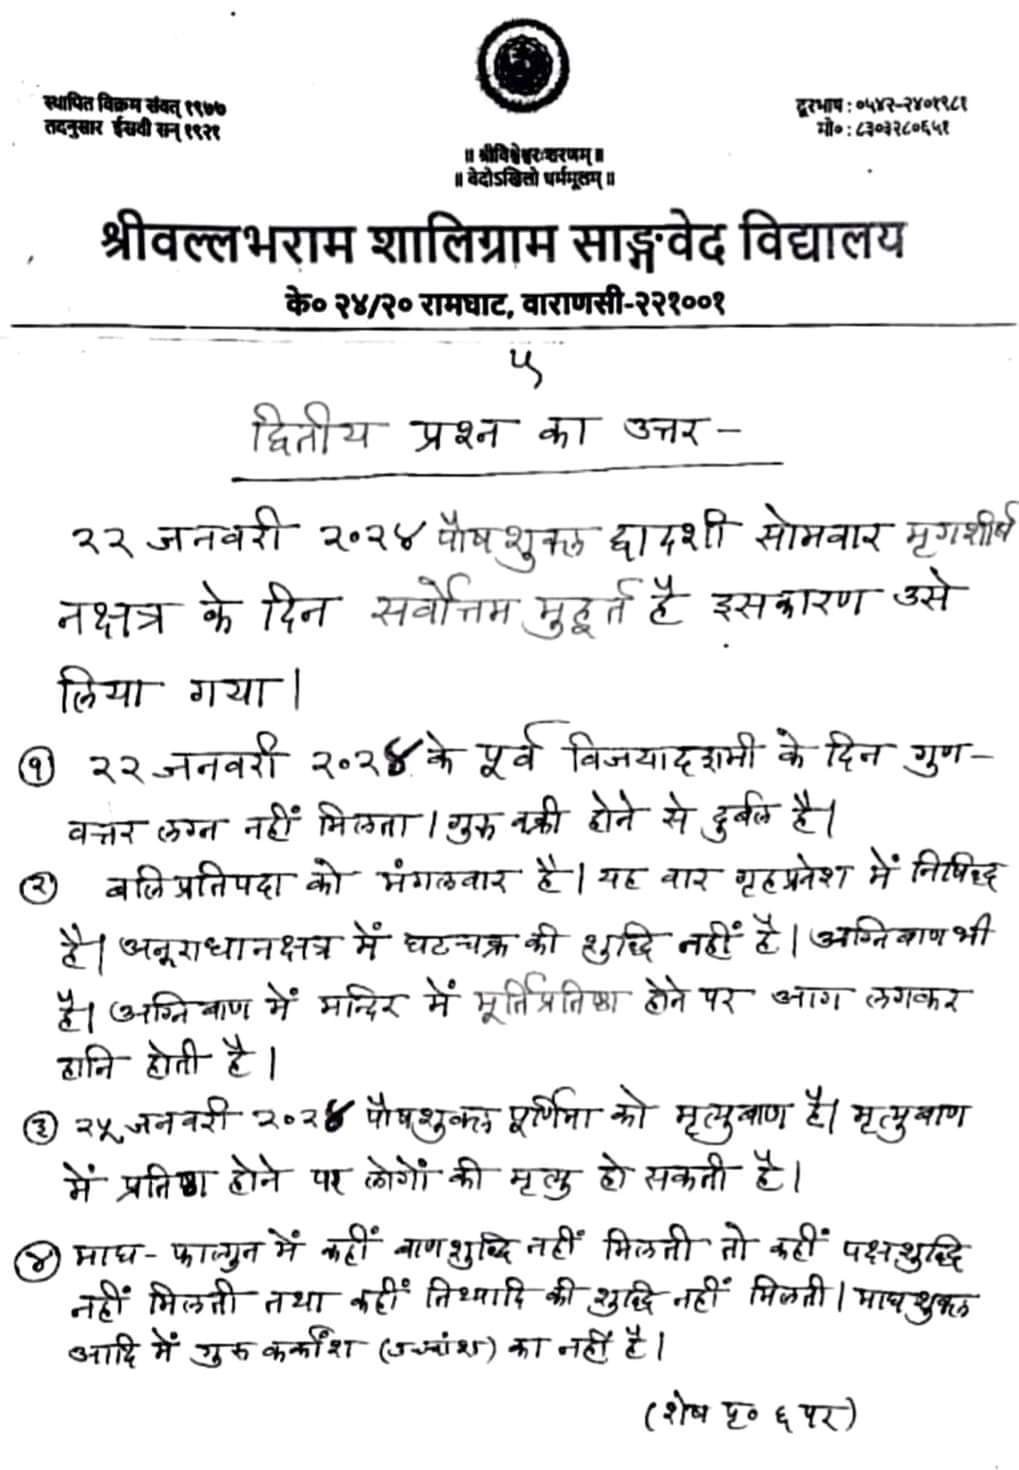 स्थापित विक्रम संवत् १९७७
तदनुसार ईसवी सन् १९२१
दूरभाष : ०५४२-२४०१९८१
मो० : ८३०३२८०६५१
॥ श्रीविश्वेश्वरः शरणम् ॥
॥ वेदोऽखिलो धर्ममूलम् ॥
श्रीवल्लभराम शालिग्राम साङ्गवेद विद्यालय
के० २४/२० रामघाट, वाराणसी-२२१००१
५
द्वितीय प्रश्न का उत्तर –
२२ जनवरी २०२४ पौषशुक्ल द्वादशी सोमवार मृगशीर्ष
नक्षत्र के दिन सर्वोत्तम मुहूर्त है इसकारण उसे
लिया गया।
① २२ जनवरी २०२४ के पूर्व विजयादशमी के दिन गुण-
वत्तर लग्न नहीं मिलता। गुरु वक्री होने से दुर्बल है।
② बलिप्रतिपदा को मंगलवार है। यह वार गृहप्रवेश में निषिद्ध
है। अनुराधानक्षत्र में घटचक्र की शुद्धि नहीं है। अग्निबाण भी
है। अग्निबाण में मन्दिर में मूर्तिप्रतिष्ठा होने पर आग लगकर
हानि होती है।
③ २५ जनवरी २०२४ पौषशुक्ल पूर्णिमा को मृत्युबाण है। मृत्युबाण
में प्रतिष्ठा होने पर लोगों की मृत्यु हो सकती है।
④ माघ - फाल्गुन में कहीं बाणशुद्धि नहीं मिलती तो कहीं पक्षशुद्धि
नहीं मिलती तथा कहीं तिथ्यादि की शुद्धि नहीं मिलती। माघशुक्ल
आदि में गुरु कर्कांश (उच्चांश) का नहीं है।
(शेष पृ० ६ पर)